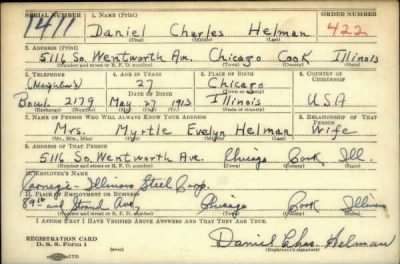 SERIAL NUMBER 1. NAME (Print) ORDER NUMBER
1411 Daniel Charles Helman 422
(First) (Middle) (Last)
2. ADDRESS (Print)
5116 So. Wentworth Ave. Chicago Cook Illinois
(Number and street or R. F. D. number) (Town) (County) (State)
3. TELEPHONE 4. AGE IN YEARS 5. PLACE OF BIRTH 6. COUNTRY OF CITIZENSHIP
(Neighbor's) 27 Chicago
Boul. 2179 May 27 1913 Illinois USA
7. NAME OF PERSON WHO WILL ALWAYS KNOW YOUR ADDRESS 8. RELATIONSHIP OF THAT PERSON
Mrs. Myrtle Evelyn Helman Wife
(Mr., Mrs., Miss) (First) (Middle) (Last)
9. ADDRESS OF THAT PERSON
5116 So. Wentworth Ave. Chicago Cook Ill.
(Number and street or R. F. D. number) (Town) (County) (State)
10. EMPLOYER'S NAME
Carnegie-Illinois Steel Corp.
11. PLACE OF EMPLOYMENT OR BUSINESS
89th and Strand Ave, Chicago Cook Illinois
(Number and street or R. F. D. number) (Town) (County) (State)
I AFFIRM THAT I HAVE VERIFIED ABOVE ANSWERS AND THAT THEY ARE TRUE.
REGISTRATION CARD
D. S. S. Form 1 Daniel Chas. Helman
(Registrant's signature)